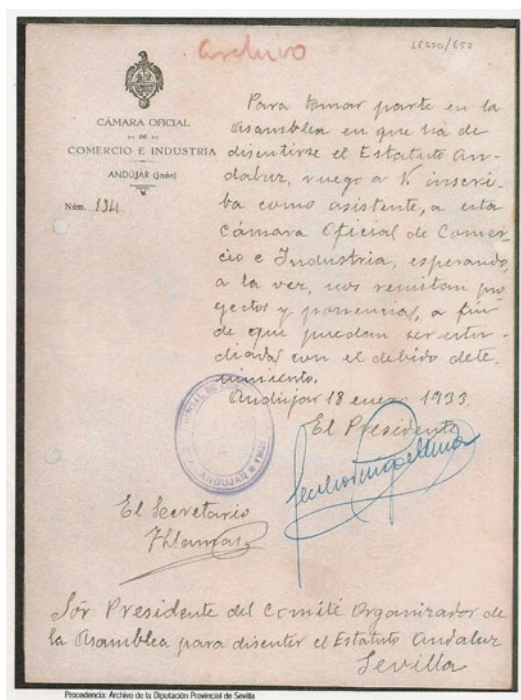 Archivo
CÁMARA OFICIAL
DE
COMERCIO E INDUSTRIA
ANDÚJAR (Jaén)
Núm. 194
Para tomar parte en la
Asamblea en que ha de
discutirse el Estatuto An-
daluz, ruego a V. inscri-
ba como asistente, a esta
Cámara Oficial de Comer-
cio e Industria, esperando,
a la vez, nos remitan pro
yectos y ponencias, a fin
de que puedan ser estu-
diadas con el debido dete-
nimiento.
Andújar 18 enero 1933.
El Presidente
ANDUJAR
El Secretario
Sór Presidente del Comité Organizador de
la Asamblea para discutir el Estatuto Andaluz
Sevilla
Procedencia: Archivo de la Diputación Provincial de Sevilla